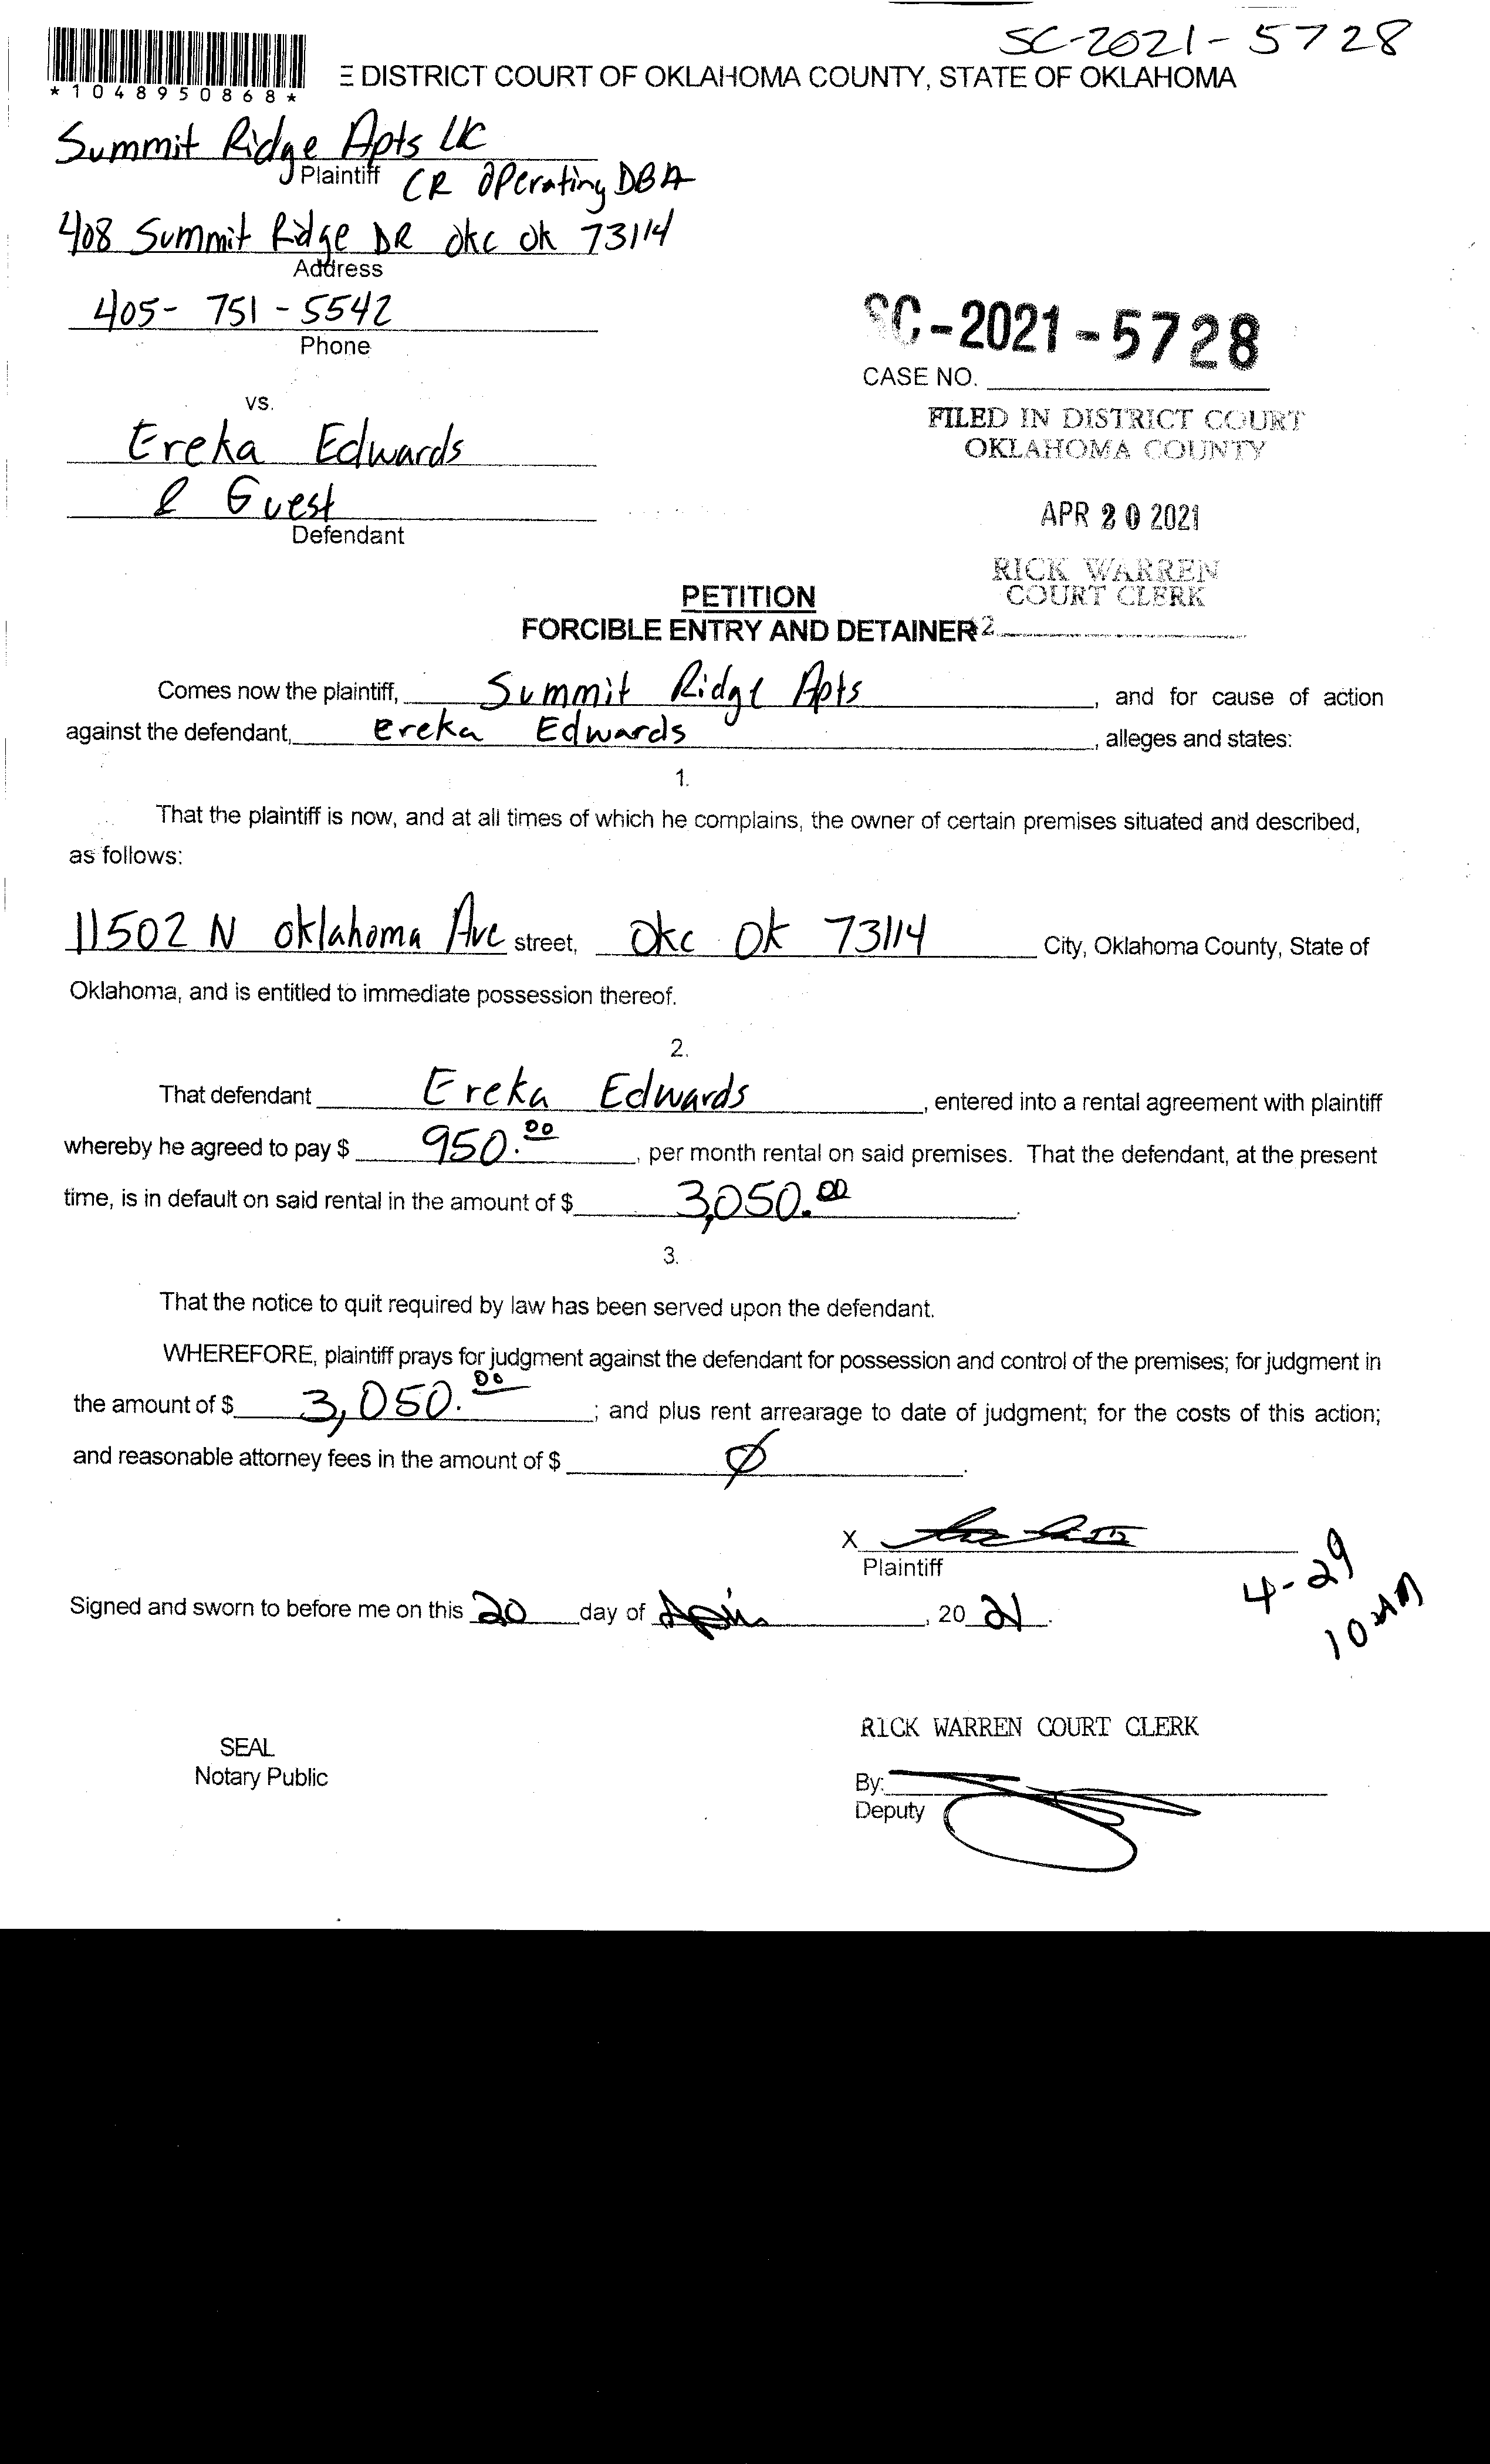 SC-2021-5728
*1048950868*
E DISTRICT COURT OF OKLAHOMA COUNTY, STATE OF OKLAHOMA
Summit Ridge Apts LLC
Plaintiff CR OPerating DBA
408 Summit Ridge DR OKC OK 73114
Address
405-751-5542
Phone
SC-2021-5728
CASE NO.
vs.
FILED IN DISTRICT COURT
OKLAHOMA COUNTY
Ereka Edwards
& Guest
Defendant
APR 20 2021
RICK WARREN
COURT CLERK
PETITION
FORCIBLE ENTRY AND DETAINER 2
Comes now the plaintiff, Summit Ridge Apts, and for cause of action
against the defendant, Ereka Edwards, alleges and states:
1.
That the plaintiff is now, and at all times of which he complains, the owner of certain premises situated and described,
as follows:
11502 N Oklahoma Ave street, OKC OK 73114 City, Oklahoma County, State of
Oklahoma, and is entitled to immediate possession thereof.
2.
That defendant Ereka Edwards, entered into a rental agreement with plaintiff
whereby he agreed to pay $ 950.00, per month rental on said premises. That the defendant, at the present
time, is in default on said rental in the amount of $ 3,050.00.
3.
That the notice to quit required by law has been served upon the defendant.
WHEREFORE, plaintiff prays for judgment against the defendant for possession and control of the premises; for judgment in
the amount of $ 3,050.00; and plus rent arrearage to date of judgment; for the costs of this action;
and reasonable attorney fees in the amount of $ Ø.
X
Plaintiff
4-29
10 AM
Signed and sworn to before me on this 20 day of April, 20 21.
RICK WARREN COURT CLERK
SEAL
Notary Public
By:
Deputy